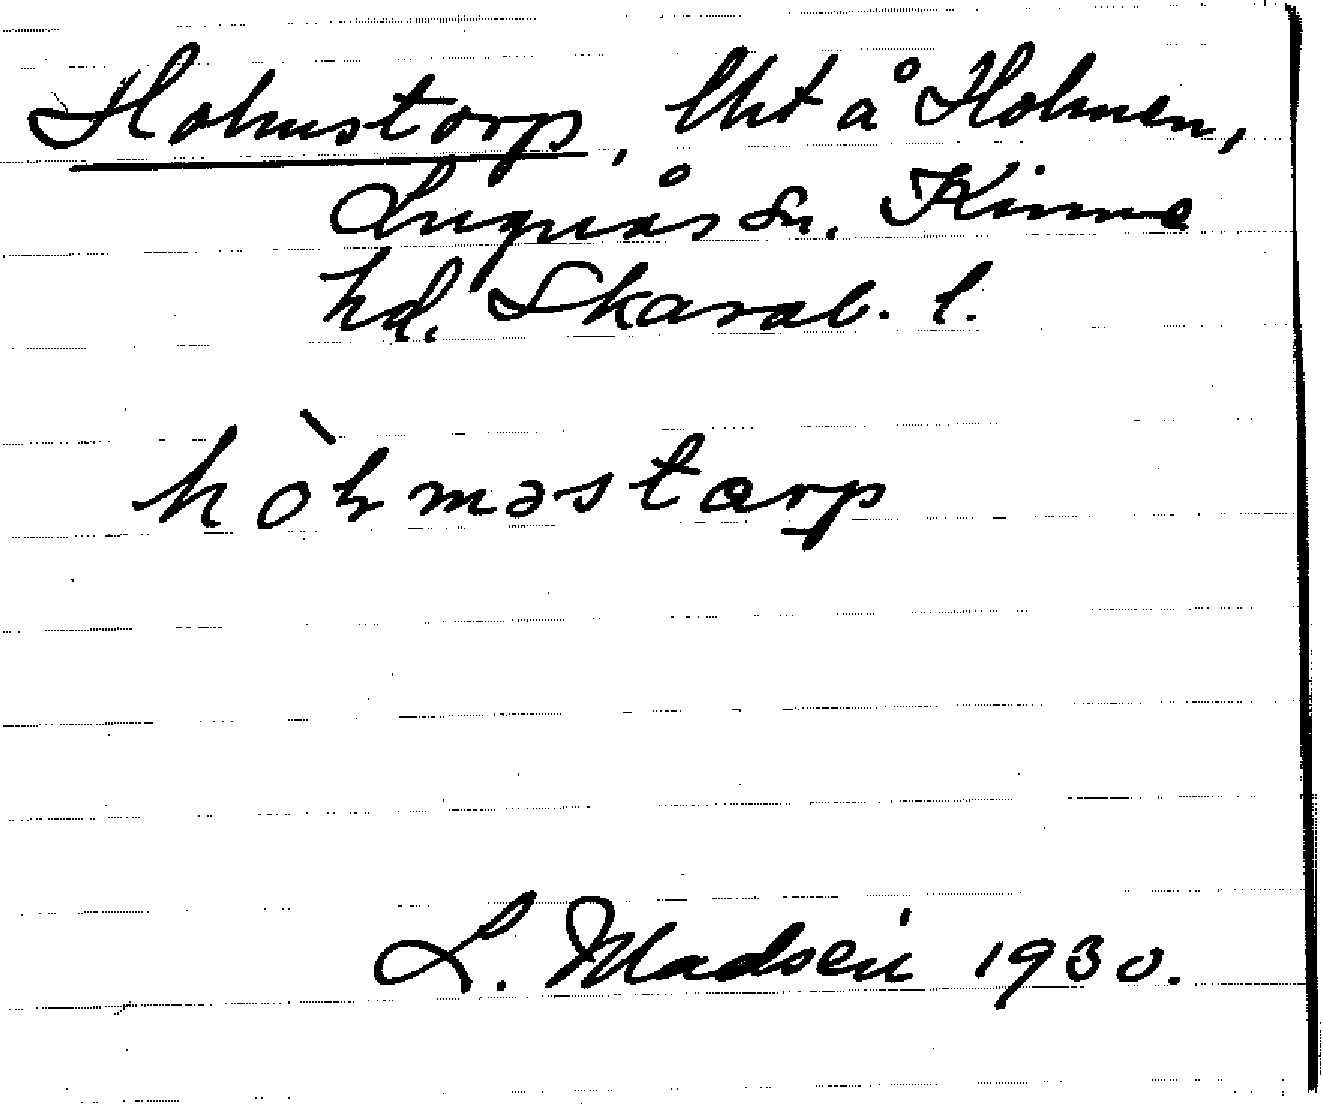 Holmstorp, lht å Holmen,
Lugnås sn. Kinne
hd. Skarab. l.
hòlməstarp
L. Madsén 1930.